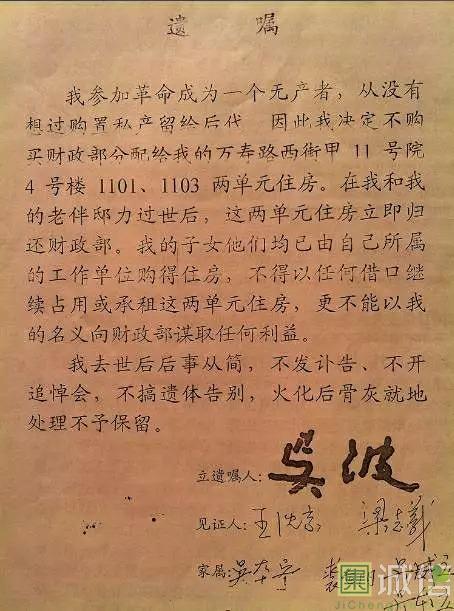 遗 嘱
我参加革命成为一个无产者，从没有
想过购置私产留给后代 因此我决定不购
买财政部分配给我的万寿路西街甲 11 号院
4 号楼 1101、1103 两单元住房。在我和我
的老伴邸力过世后，这两单元住房立即归
还财政部。我的子女他们均已由自己所属
的工作单位购得住房，不得以任何借口继
续占用或承租这两单元住房，更不能以我
的名义向财政部谋取任何利益。
我去世后后事从简，不发讣告、不开
追悼会，不搞遗体告别，火化后骨灰就地
处理不予保留。
立遗嘱人：吴波
见证人：王
家属：吴
集 诚信
JiChen